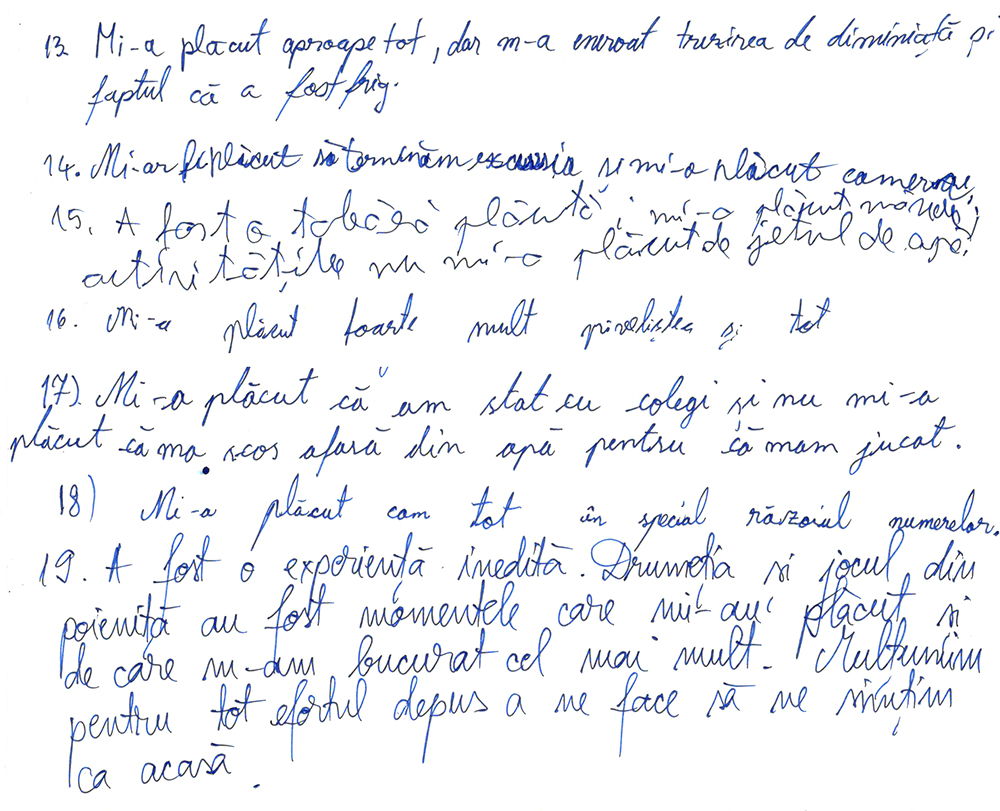 13. Mi-a placut aproape tot, dar m-a enervat trezirea de diminiață și
faptul că a fost frig.
14. Mi-ar fi plăcut să terminăm și mi-a plăcut camera,
15. A fost o tabără plăcută, mi-a plăcut
activitățile nu mi-a plăcut de jetul de apă.
16. Mi-a plăcut foarte mult priveliștea și tot
17). Mi-a plăcut că am stat cu colegi și nu mi-a
plăcut că ma scos afară din apă pentru că mam jucat.
18) Mi-a plăcut cam tot în special războiul numerelor.
19. A fost o experiență inedită. Drumeția si jocul din
poieniță au fost momentele care mi-au plăcut si
de care m-am bucurat cel mai mult. Multumim
pentru tot efortul depus a ne face să ne simțim
ca acasă.